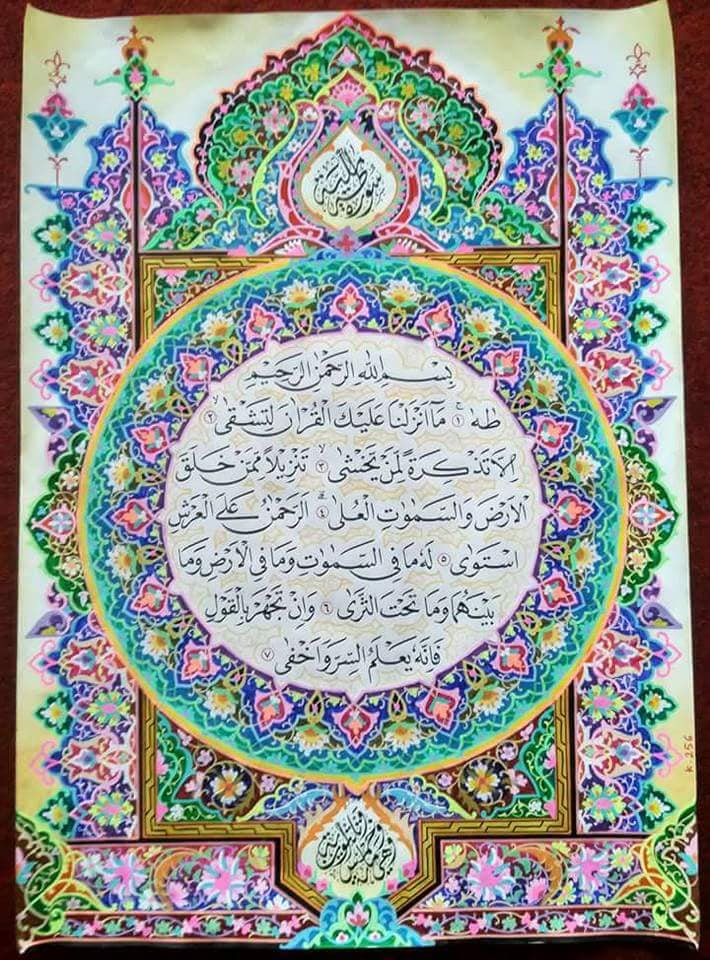 سورة طه المكية
بِسْمِ اللهِ الرَّحْمٰنِ الرَّحِيْمِ
طٰهٰ ۚ ١ مَآ اَنْزَلْنَا عَلَيْكَ الْقُرْاٰنَ لِتَشْقٰىٓ ۙ ٢
اِلَّا تَذْكِرَةً لِّمَنْ يَّخْشٰى ۙ ٣ تَنْزِيْلًا مِّمَّنْ خَلَقَ
الْاَرْضَ وَالسَّمٰوٰتِ الْعُلٰى ۗ ٤ اَلرَّحْمٰنُ عَلَى الْعَرْشِ
اسْتَوٰى ٥ لَهٗ مَا فِى السَّمٰوٰتِ وَمَا فِى الْاَرْضِ وَمَا
بَيْنَهُمَا وَمَا تَحْتَ الثَّرٰى ٦ وَاِنْ تَجْهَرْ بِالْقَوْلِ
فَاِنَّهٗ يَعْلَمُ السِّرَّ وَاَخْفٰى ٧
K.256